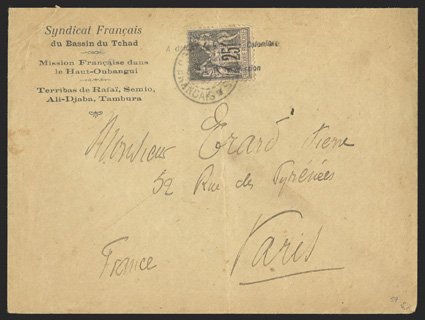 Syndicat Français
du Bassin du Tchad
Mission Française dans
le Haut-Oubangui
Terribas de Rafaï, Semio,
Ali-Djaba, Tambura
25
Monsieur Erard Pierre
52 Rue des Pyrénées
Paris
France